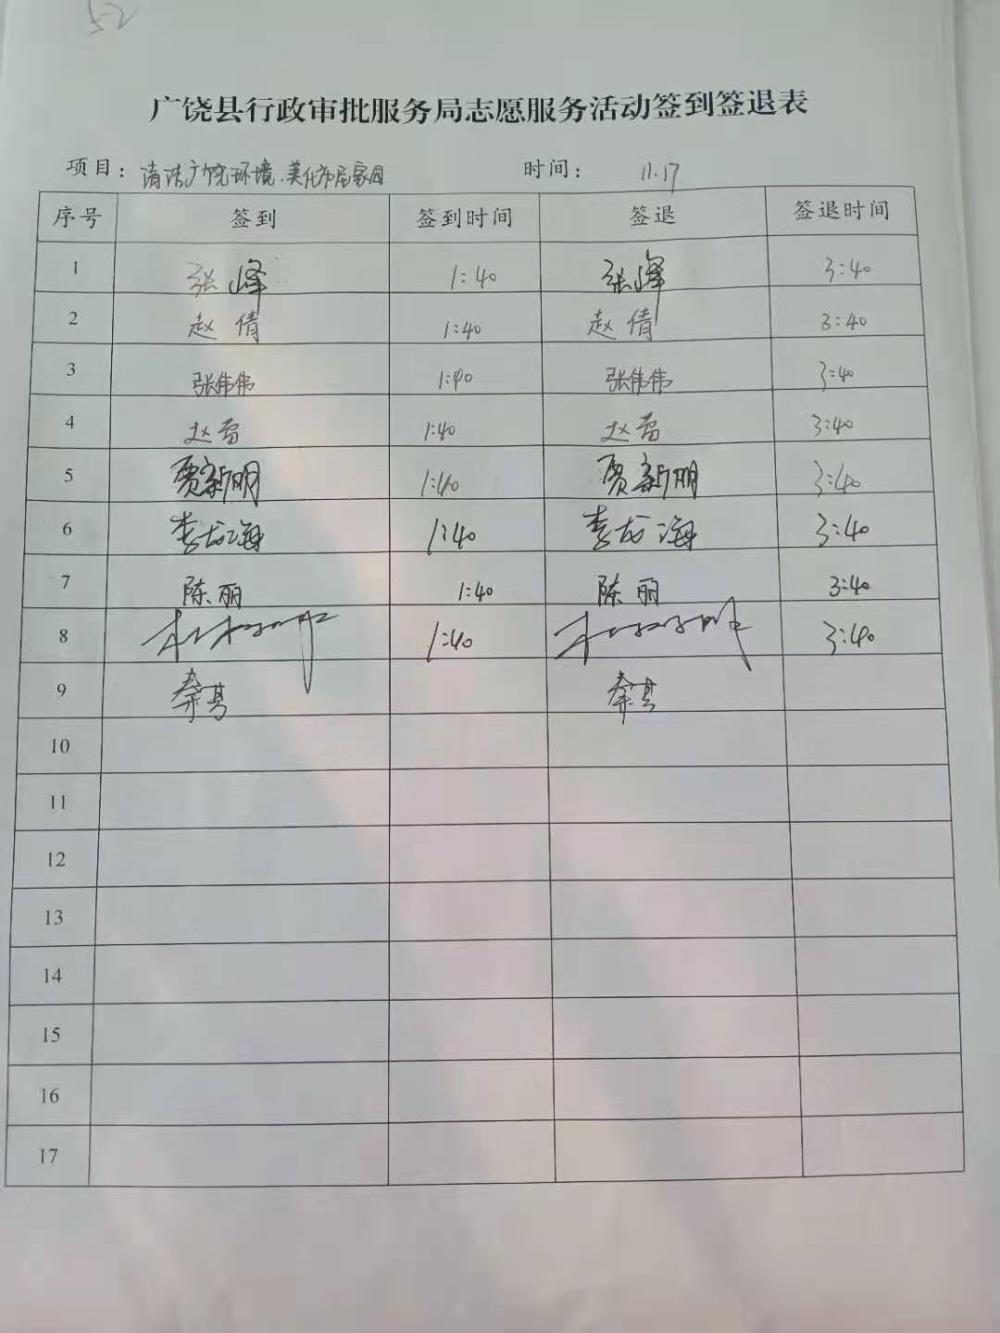 5-2
广饶县行政审批服务局志愿服务活动签到签退表
项目：清洁广饶环境.美化宜居家园 时间： 11.17
序号 签到 签到时间 签退 签退时间
1 张峰 1:40 张峰 3:40
2 赵倩 1:40 赵倩 3:40
3 张伟伟 1:40 张伟伟 3:40
4 赵雷 1:40 赵雷 3:40
5 贾新明 1:40 贾新明 3:40
6 李龙海 1:40 李龙海 3:40
7 陈丽 1:40 陈丽 3:40
8 1:40 3:40
9
10
11
12
13
14
15
16
17